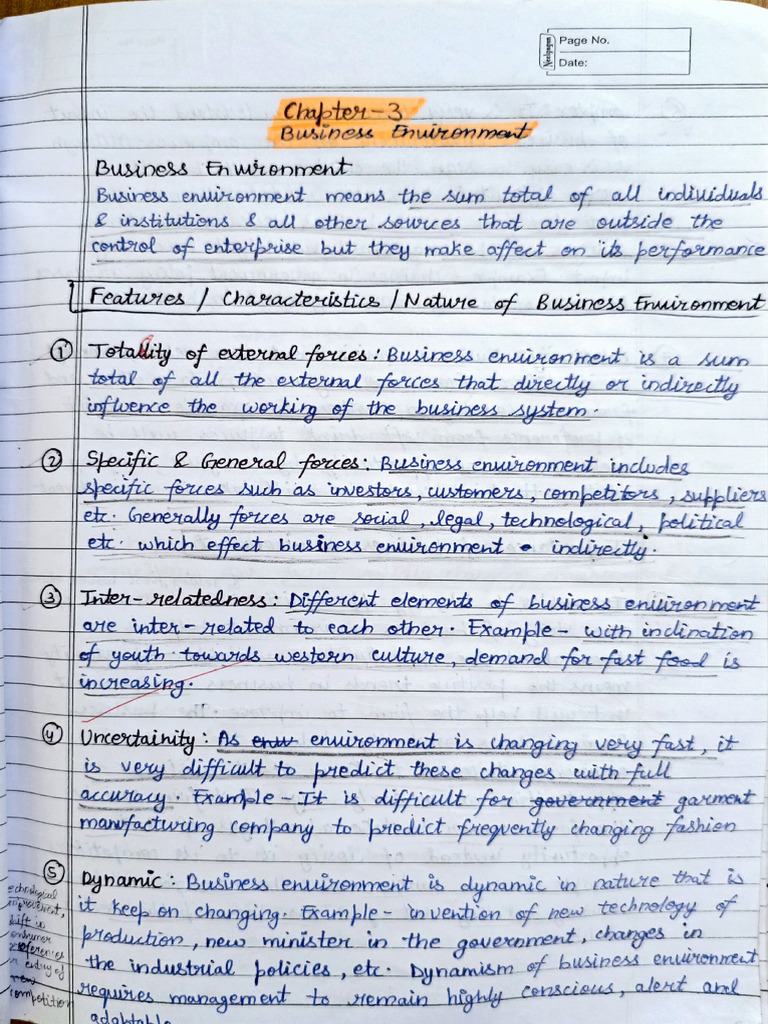 Neelgagan
Page No.
Date:
Chapter-3
Business Environment
Business Environment
Business environment means the sum total of all individuals
& institutions & all other sources that are outside the
control of enterprise but they make affect on its performance
Features / Characteristics / Nature of Business Environment
① Totality of external forces: Business environment is a sum
total of all the external forces that directly or indirectly
influence the working of the business system.
② Specific & General forces: Business environment includes
specific forces such as investors, customers, competitors, suppliers
etc. Generally forces are social, legal, technological, political
etc. which effect business environment indirectly.
③ Inter-relatedness: Different elements of business environment
are inter-related to each other. Example- with inclination
of youth towards western culture, demand for fast food is
increasing.
④ Uncertainity: As environment is changing very fast, it
is very difficult to predict these changes with full
accuracy. Example- It is difficult for government garment
manufacturing company to predict frequently changing fashion
⑤ Dynamic: Business environment is dynamic in nature that is
it keep on changing. Example- invention of new technology of
production, new minister in the government, changes in
the industrial policies, etc. Dynamism of business environment
requires management to remain highly conscious, alert and
adaptable
echnological
improvement,
shift in
onsumer
preferences
entry of
new
competition